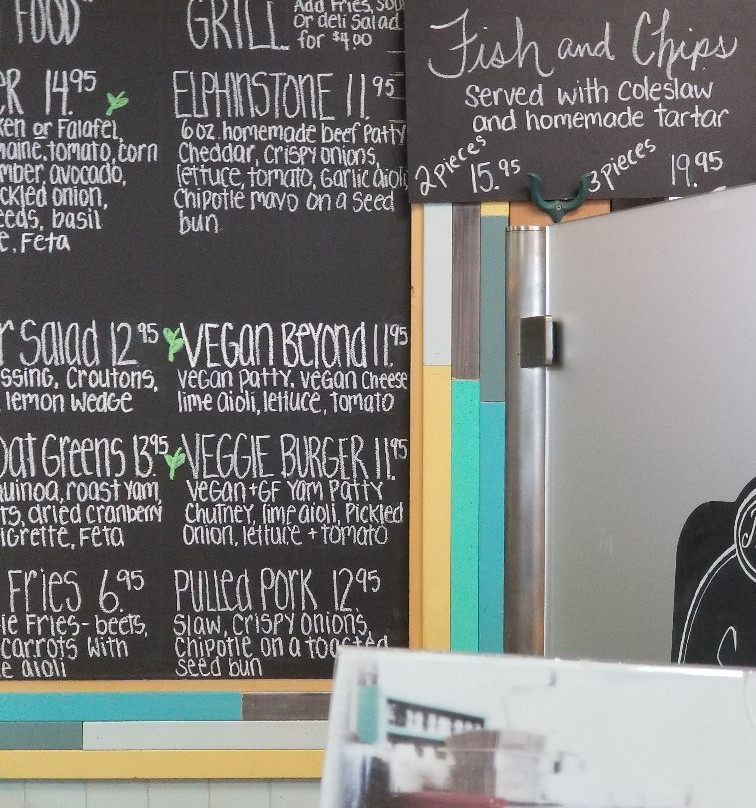 FOOD"
R 14.95
ken or Falafel,
maine, tomato, corn
mber, avocado,
ckled onion,
eeds, basil
e, Feta
r Salad 12.95
ssing, croutons,
lemon wedge
oat Greens 13.95
uinoa, roast yam,
ts, dried cranberry
igrette, Feta
Fries 6.95
le Fries - beets,
carrots with
e aioli
GRILL
Add Fries, Soup
Or deli Salad
for $4.00
ELPHINSTONE 11.95
6oz. homemade beef patty
Cheddar, crispy onions,
lettuce, tomato, Garlic aioli
Chipotle mayo on a seed
bun
VEGAN Beyond 11.95
vegan patty, vegan cheese
lime aioli, lettuce, tomato
VEGGIE BURGER 11.95
vegan + GF yam patty
Chutney, lime aioli, Pickled
Onion, lettuce + tomato
PULLED PORK 12.95
Slaw, crispy onions,
Chipotle on a toasted
seed bun
Fish and Chips
Served with coleslaw
and homemade tartar
2 pieces 15.95
3 pieces 19.95